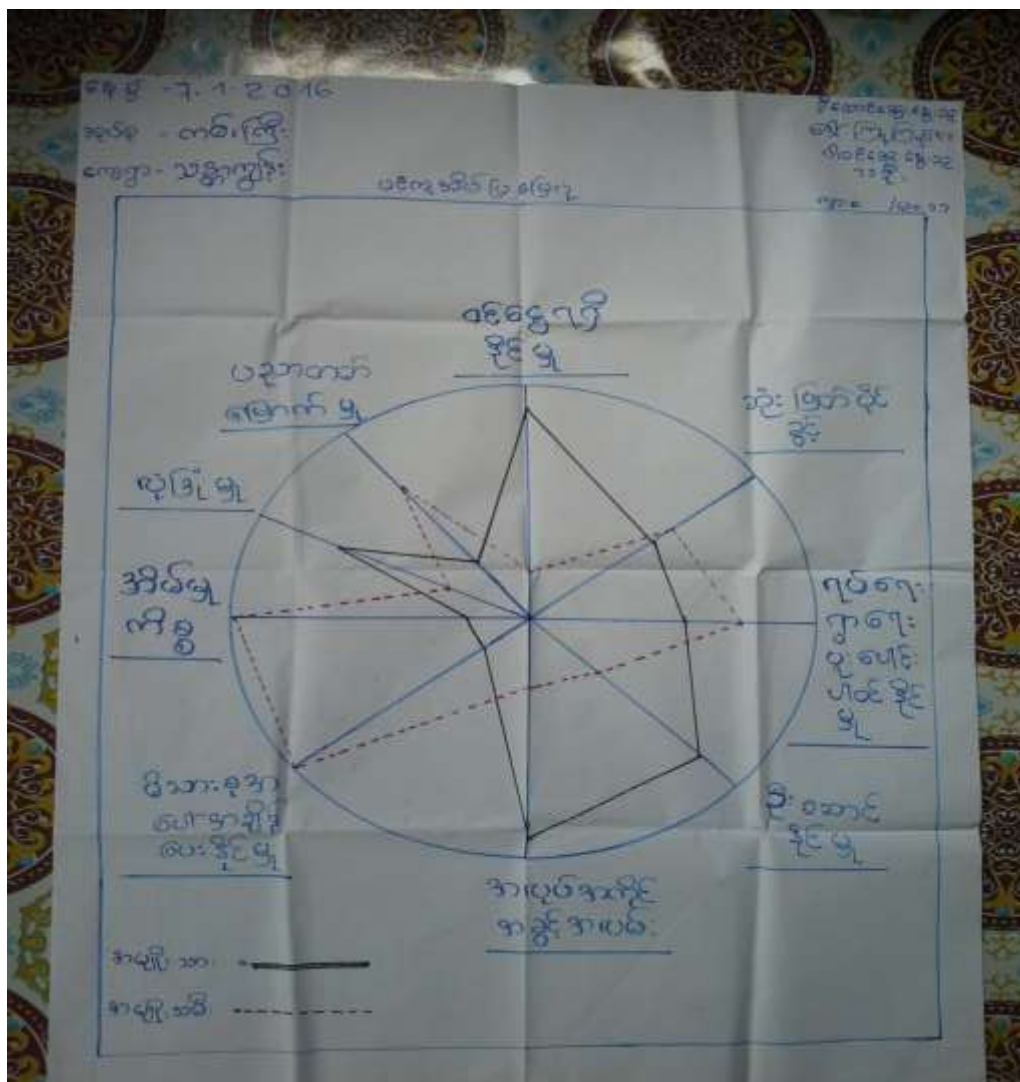 နေ့စွဲ - 7.1.2016
အုပ်စု - ကမ်းကြီး
ကျေးရွာ -
ဝင်ငွေရရှိ
နိုင်မှု
ပညာတတ်
မြောက်မှု
ဆုံးဖြတ်ပိုင်
ခွင့်
လုံခြုံမှု
အိမ်မှု
ကိစ္စ
ရပ်ရေး
ရွာရေး
ပူးပေါင်း
ပါဝင်နိုင်
မှု
မိသားစုအ
ပေါ်အချိန်
ပေးနိုင်မှု
ဦးဆောင်
နိုင်မှု
အလုပ်အကိုင်
အခွင့်အလမ်း
အမျိုးသား
အမျိုးသမီး